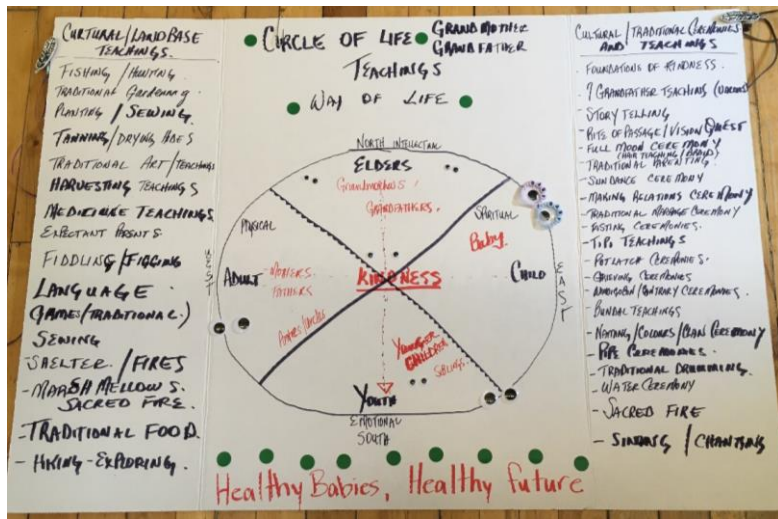 CULTURAL/LAND BASE
TEACHINGS.
FISHING/HUNTING.
TRADITIONAL GARDENING
PLANTING/SEWING.
TANNING/DRYING HIDES
TRADITIONAL ART/TEACHINGS
HARVESTING TEACHINGS
MEDICINE TEACHINGS
EXPECTANT PARENTS.
FIDDLING/JIGGING
LANGUAGE.
GAMES/TRADITIONAL.)
SEWING
SHELTER./FIRES
-MARSH MELLOWS.
SACRED FIRE.
-TRADITIONAL FOOD.
- HIKING-EXPLORING.
CIRCLE OF LIFE
GRANDMOTHER
GRANDFATHER
TEACHINGS
WAY OF LIFE
NORTH INTELLECTUAL
ELDERS
Grandmothers.
GRANDFATHERS.
PHYSICAL
SPIRITUAL
Baby.
WEST
ADULT
-MOTHERS
FATHERS
KINDNESS
CHILD
EAST
Aunties/Uncles
YOUNGER
CHILDREN
SIBLINGS
YOUTH
EMOTIONAL
SOUTH
Healthy Babies, Healthy future
CULTURAL/TRADITIONAL CEREMONIES
AND TEACHINGS
-FOUNDATIONS OF KINDNESS.
-7 GRANDFATHER TEACHING
-STORY TELLING
-RITE OF PASSAGE/VISION QUEST
-FULL MOON CEREMONY
(HAIR TEACHING/BRAID)
-TRADITIONAL PARENTING.
-SUNDANCE CEREMONY
-MAKING RELATIONS CEREMONY
-TRADITIONAL MARRIAGE CEREMONY
-FASTING CEREMONIES.
-TIPI TEACHINGS
-POTLATCH CEREMONIES.
-GRIEVING CEREMONIES
CEREMONIES.
-BUNDLE TEACHINGS
-NAMING/COLORS/CLAN CEREMONY
-PIPE CEREMONIES.
-TRADITIONAL DRUMMING.
-WATER CEREMONY
-SACRED FIRE
-SINGING/CHANTING